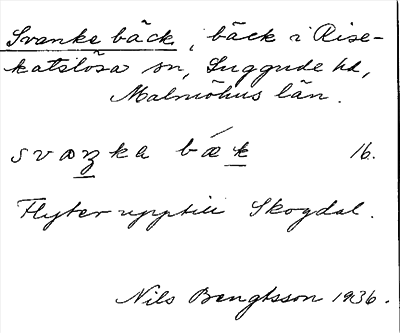 Svanke bäck, bäck i Rise-
katslösa sn, Luggude hd,
Malmöhus län.
svaŋka bæk 16.
Flyter upptill Skogdal.
Nils Bengtsson 1936.